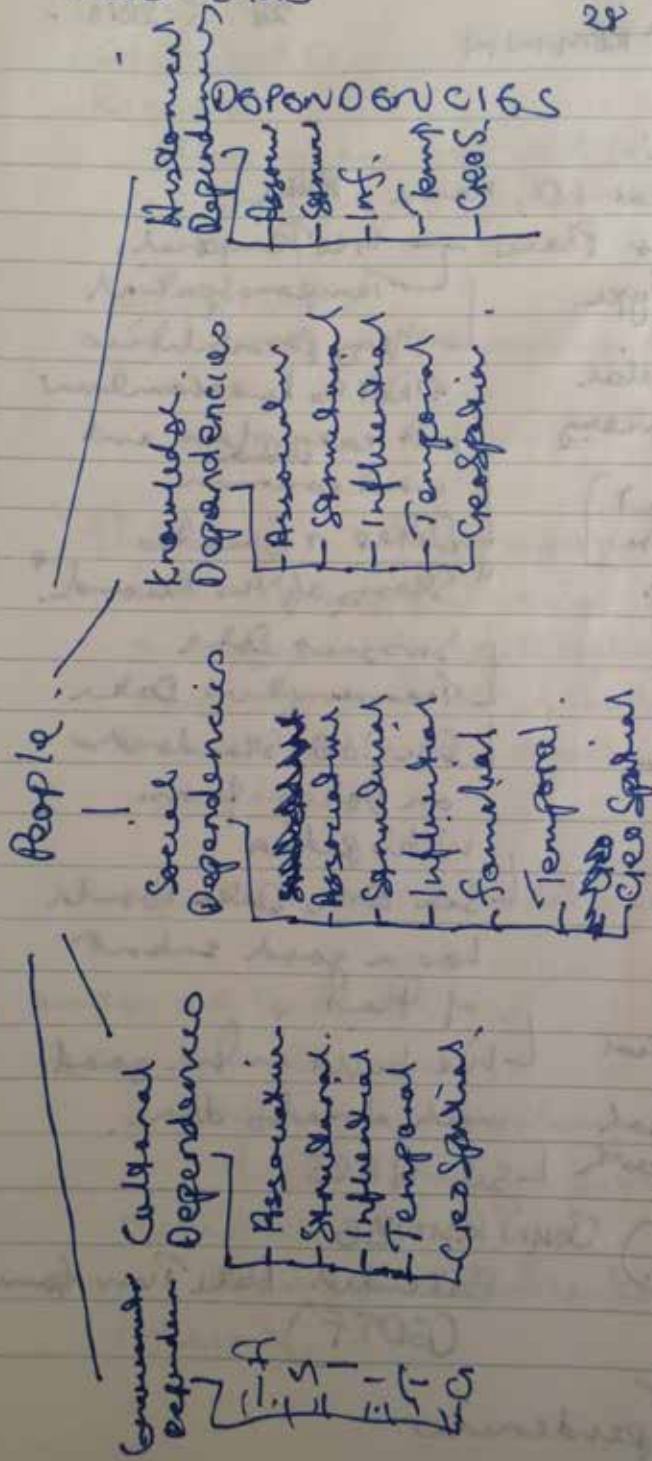 28
DEPENDENCIES
People
Dependen
A
S
I
T
G
Cultural
Dependencies
Associative
Structural.
Influential
Temporal
GeoSpatial.
Social
Dependencies
Associative
Structural
Influential
Familial
Temporal.
GeoSpatial
Knowledge
Dependencies
Associative
Structural
Influential
Temporal
GeoSpatial.
Historical
Dependencies
Inf.
Temp
GeoS.